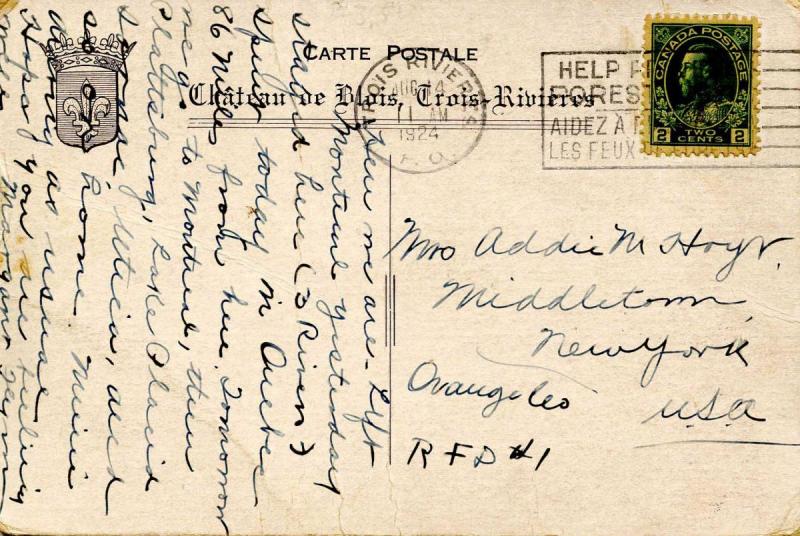 CARTE POSTALE
Château de Blois, Trois-Rivières
TROIS RIVIERES
AUG 14
11 AM
1924
P.Q.
HELP
FOREST
AIDEZ À
LES FEUX
CANADA POSTAGE
2 TWO CENTS 2
Here we are - Left
Montreal yesterday
stayed here (3 Rivers)
spent today in Quebec
86 miles from here. Tomorrow
we go to Montreal, then
Plattsburg, Lake Placid
Utica, and
so home. Minnie
as usual
Hope you are feeling
Margaret
Mrs Addie M Hoyt.
Middletown
New York
Orange Co
U.S.A
R F D #1